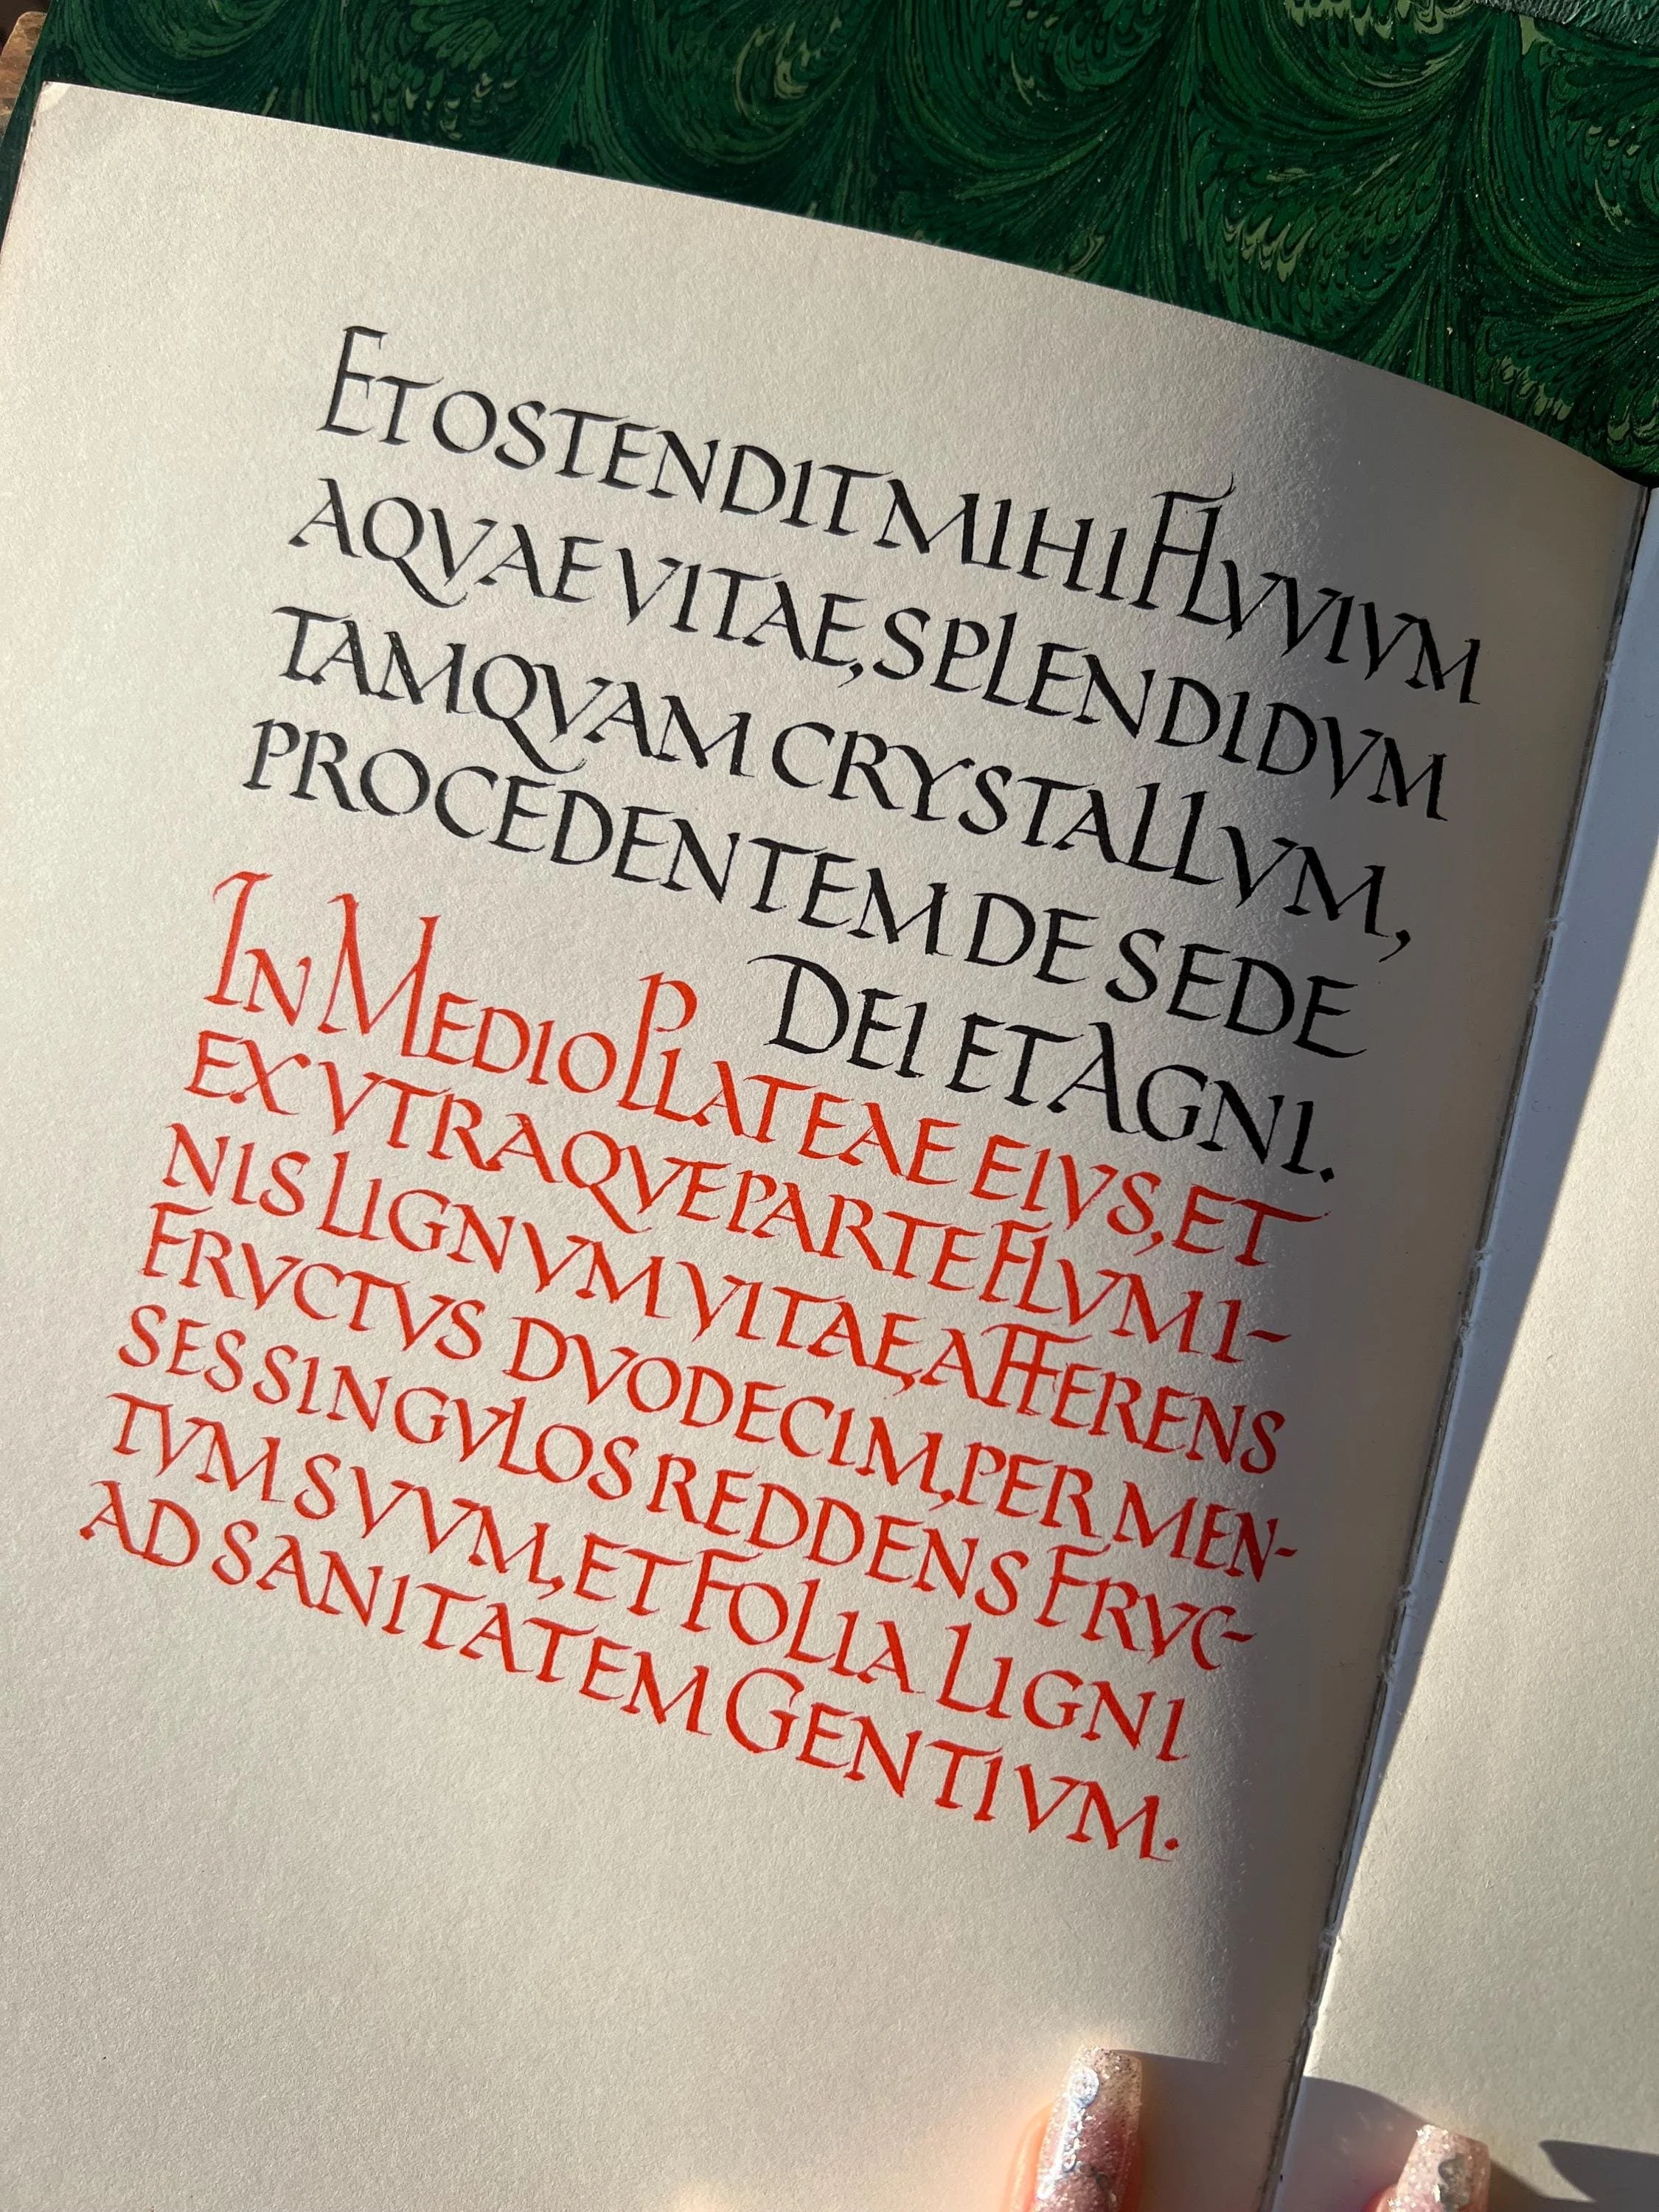 ET OSTENDIT MIHI FLVVIVM
AQVAE VITAE, SPLENDIDVM
TAMQVAM CRYSTALLVM,
PROCEDENTEM DE SEDE
DEI ET AGNI.
IN MEDIO PLATEAE EIVS, ET
EX VTRAQVE PARTE FLVMI-
NIS LIGNVM VITAE, AFFERENS
FRVCTVS DVODECIM, PER MEN-
SES SINGVLOS REDDENS FRVC-
TVM SVVM, ET FOLIA LIGNI
AD SANITATEM GENTIVM.